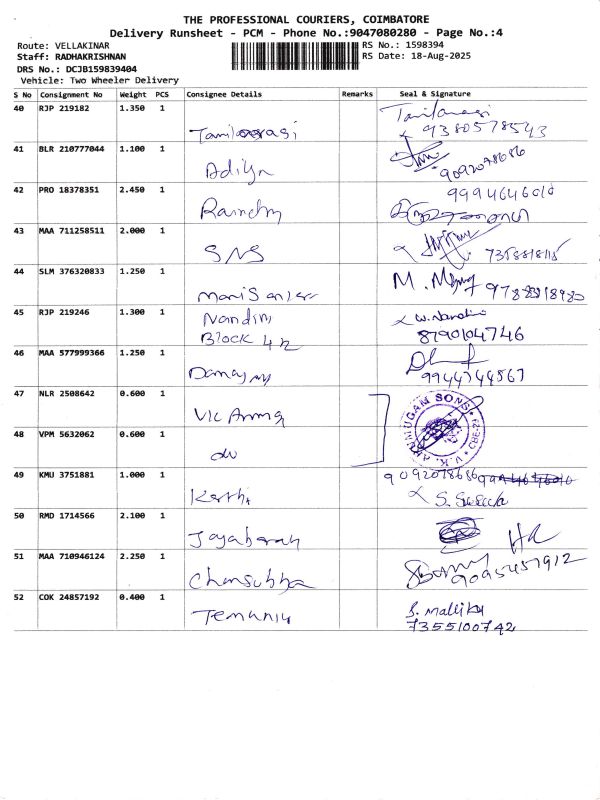 THE PROFESSIONAL COURIERS, COIMBATORE
Delivery Runsheet - PCM - Phone No.:9047080280 - Page No.:4
Route: VELLAKINAR RS No.: 1598394
Staff: RADHAKRISHNAN RS Date: 18-Aug-2025
DRS No.: DCJB159839404
Vehicle: Two Wheeler Delivery
S No Consignment No Weight PCS Consignee Details Remarks Seal & Signature
40 RJP 219182 1.350 1
Tamilarasi Tamilarasi
9380578543
41 BLR 210777044 1.100 1
Adilya 9092078686
42 PRO 18378351 2.450 1 9994646010
43 MAA 711258511 2.000 1
SNS
44 SLM 376320833 1.250 1
45 RJP 219246 1.300 1
Nandini W. Nandini
Block 42 8790104746
46 MAA 577999366 1.250 1
9944744567
47 NLR 2508642 0.600 1
V.K. ARUMUGAM SONS
48 VPM 5632062 0.600 1
49 KMU 3751881 1.000 1 9092078686
50 RMD 1714566 2.100 1
51 MAA 710946124 2.250 1
9095457912
52 COK 24857192 0.400 1
S. Mallika
7355100742